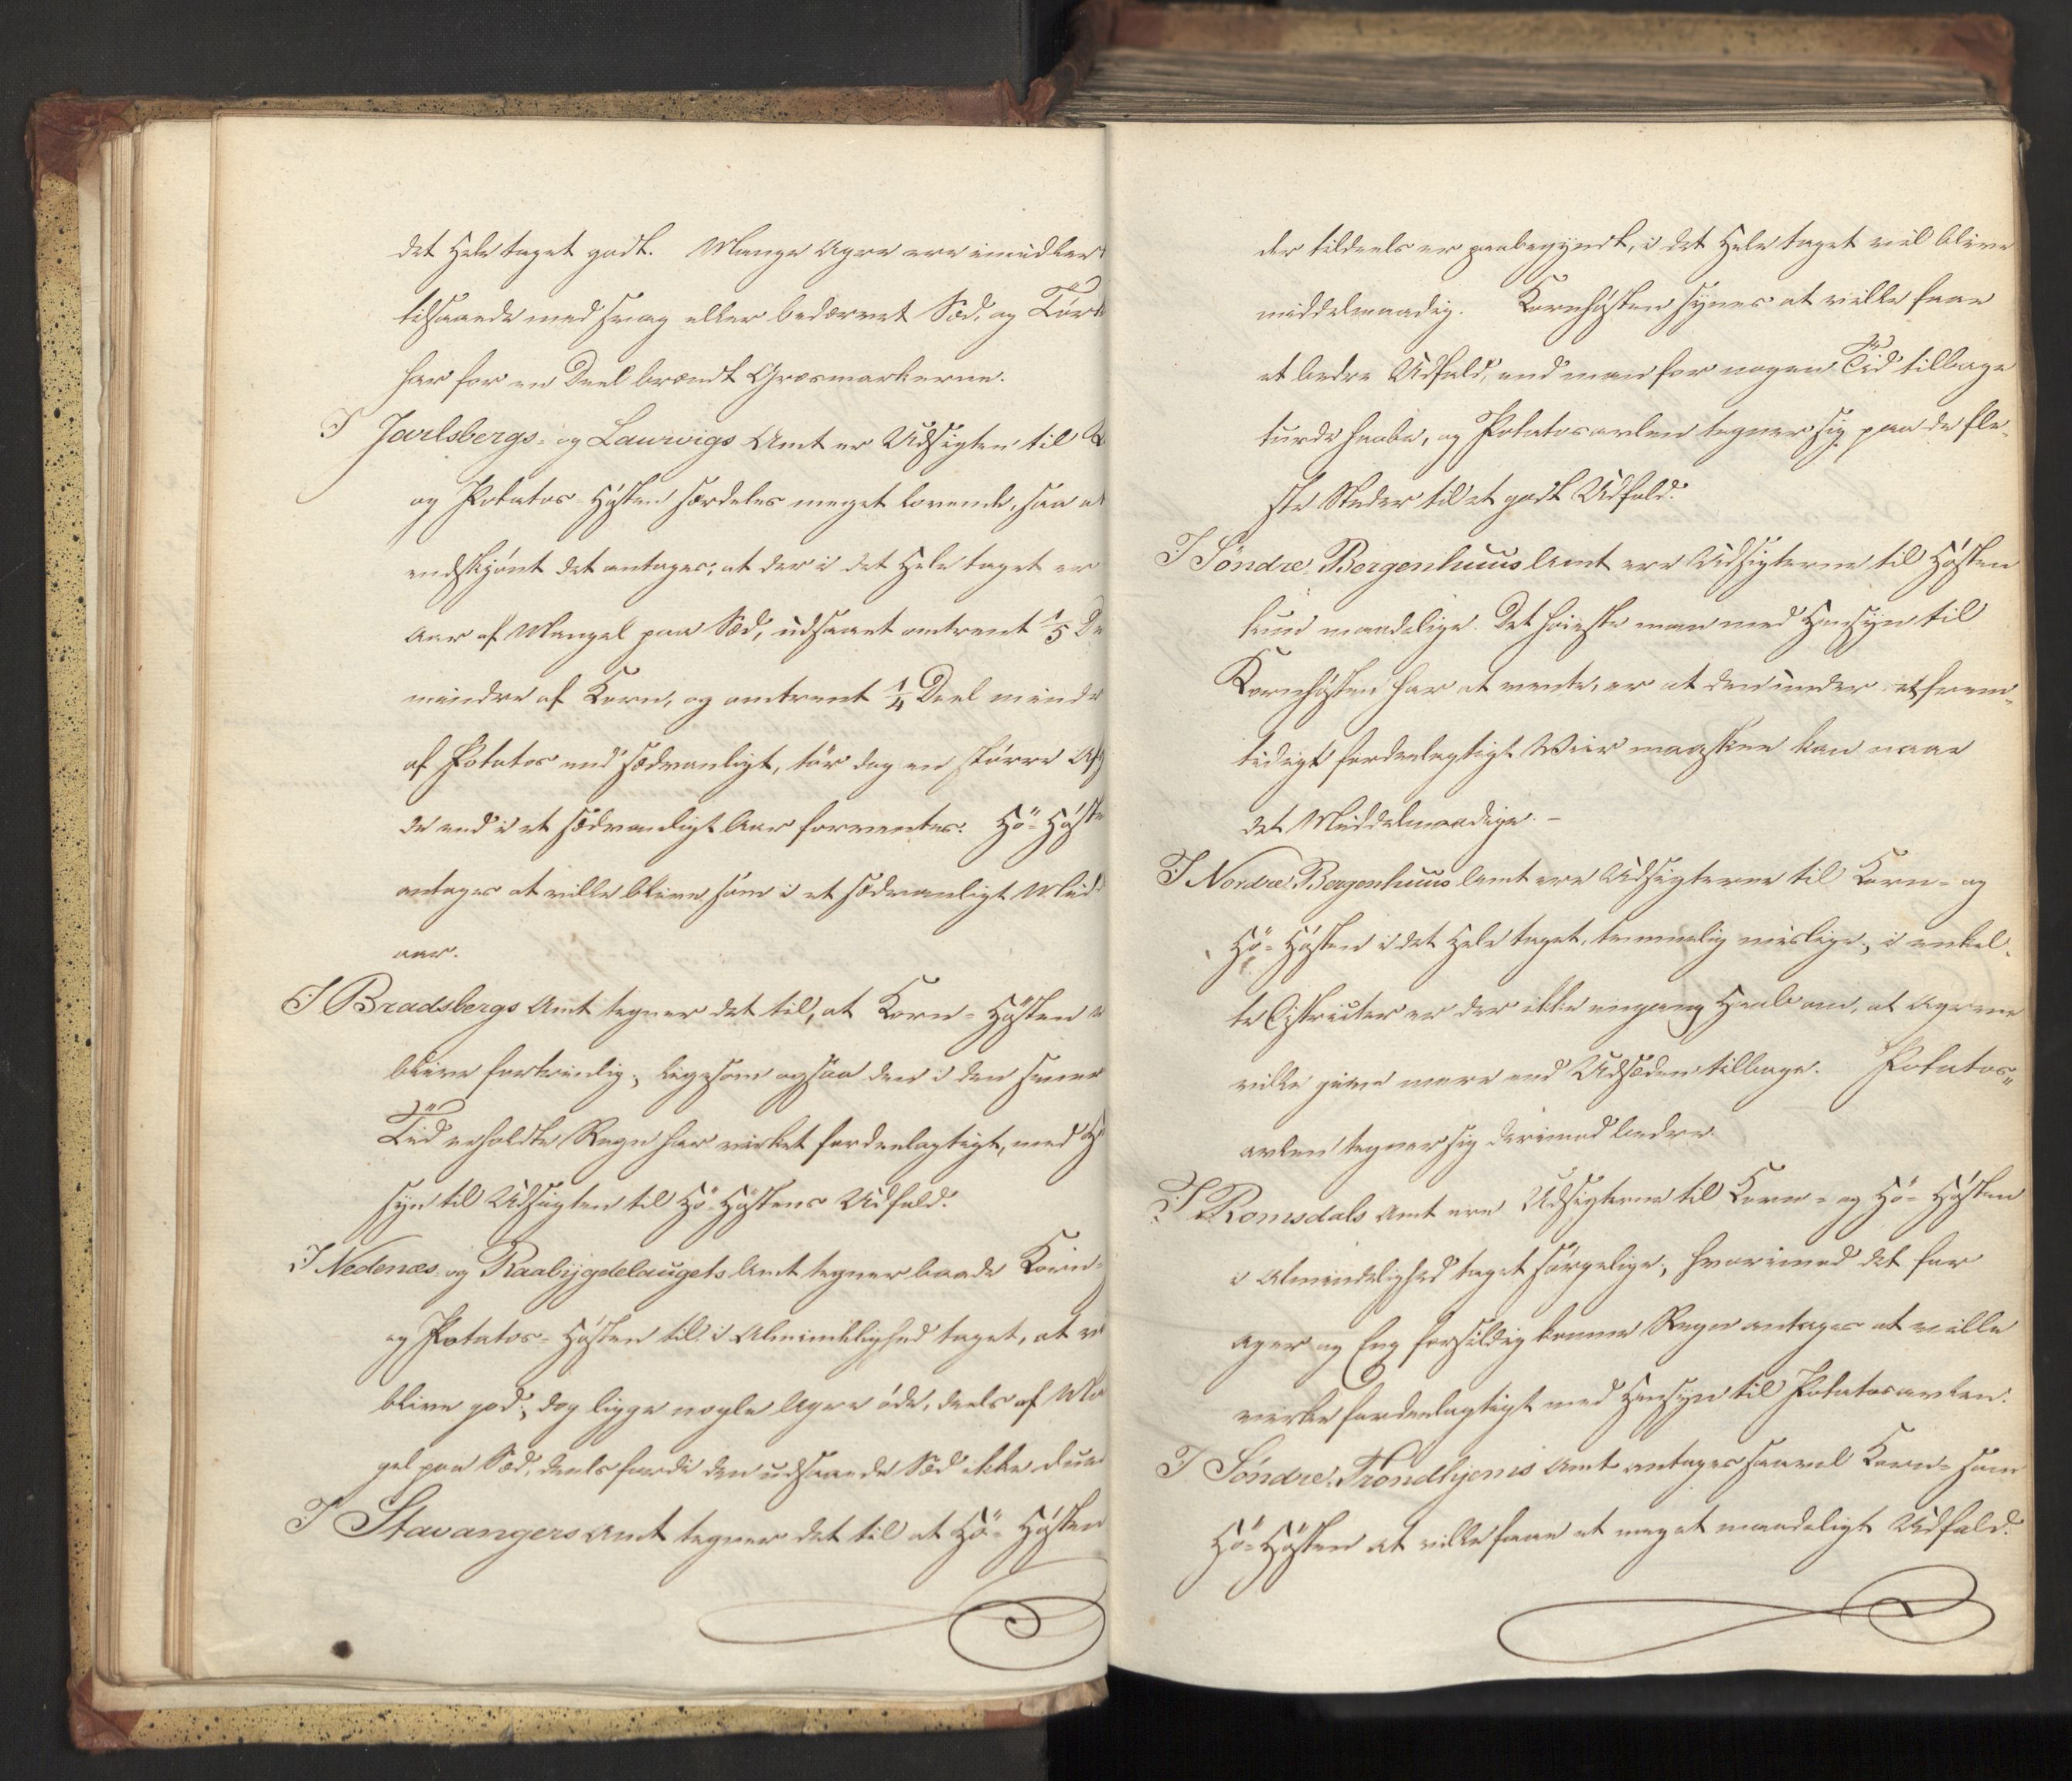 det Hele taget godt. Mange Agre ere imidler
tilsaaede med svag eller bedærvet Sæd, og Tørk
har for en Deel brændt Græsmarkerne.
I Jarlsbergs- og Laurvigs Amt er Udsigten til K
og Potatos-Høsten særdeles meget lovende, saa at
endskjønt det antages, at der i det Hele taget er
Aar af Mangel paa Sæd, udsaaet omtrent 1/5 De
mindre af Korn, og omtrent 1/4 Deel mindr
af Potatos end sædvanligt, tør dog en større Af
de end i et sædvanligt Aar forventes. Hö-Høste
antages at ville blive som i et sædvanligt Mid
aar.
I Bradsbergs Amt tegner det til, at Korn-Høsten v
blive fortrinlig; ligesom ogsaa den i den senere
Tid erholdte Regn har virket fordeelagtigt, med H
syn til Udsigten til Hö-Høstens Udfald.
I Nedenæs- og Raabygdelaugets Amt tegner baade Korn-
og Potatos-Høsten til i Almindelighed taget, at v
blive god; dog ligge nogle Agre öde, deels af Ma
gel paa Sæd, deels fordi den udsaaede Sæd ikke due
I Stavangers Amt tegner det til at Hö-Høsten
der tildeels er paabegyndt, i det Hele taget vil blive
middelmaadig. Kornhøsten synes at ville faae
et bedre Udfald, end man for nogen Tid tilbage
turde haabe, og Potatosavlen tegner sig paa de fle-
ste Steder til et godt Udfald.
I Söndre Bergenhuus Amt ere Udsigterne til Høsten
kun maadelige. Det høieste man med Hensyn til
Kornhøsten har at vente, er at den under et frem-
tidigt fordeelagtigt Veir maaskee kan naae
det Middelmaadige. -
I Nordre Bergenhuus Amt ere Udsigterne til Korn- og
Hö-Høsten i det Hele taget, temmelig mislige; i enkel-
te Districter er der ikke engang Haab om, at Agrene
ville give mere end Udsæden tilbage. Potatos-
avlen tegner sig derimod bedre.
I Romsdals Amt ere Udsigterne til Korn- og Hö-Høsten
i Almindelighed taget sørgelige; hvorimod det for
Ager og Eng forsildig komne Regn antages at ville
virke fordeelagtigt med Hensyn til Potatosavlen.
I Söndre Trondhjems Amt antages saavel Korn- som
Hö-Høsten at ville faae et meget maadeligt Udfald.